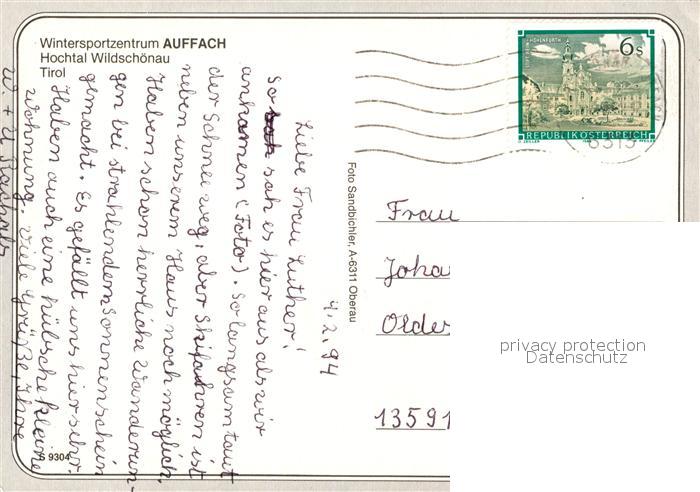 Wintersportzentrum AUFFACH
Hochtal Wildschönau
Tirol
4.2.94
Liebe Frau Luther!
So sah es hier aus als wir
ankamen (Foto). So langsam taut
der Schnee weg, aber Skifahren ist
neben unserem Haus noch möglich.
Haben schon herrliche Wanderun-
gen bei strahlendem Sonnenschein
gemacht. Es gefällt uns hier sehr.
Haben auch eine hübsche kleine
Wohnung. Viele Grüße, Ihre
W + U
S 9304
Foto Sandbichler, A-6311 Oberau
6s
REPUBLIK ÖSTERREICH
6313
Frau
Joha
Olde
13591
privacy protection
Datenschutz